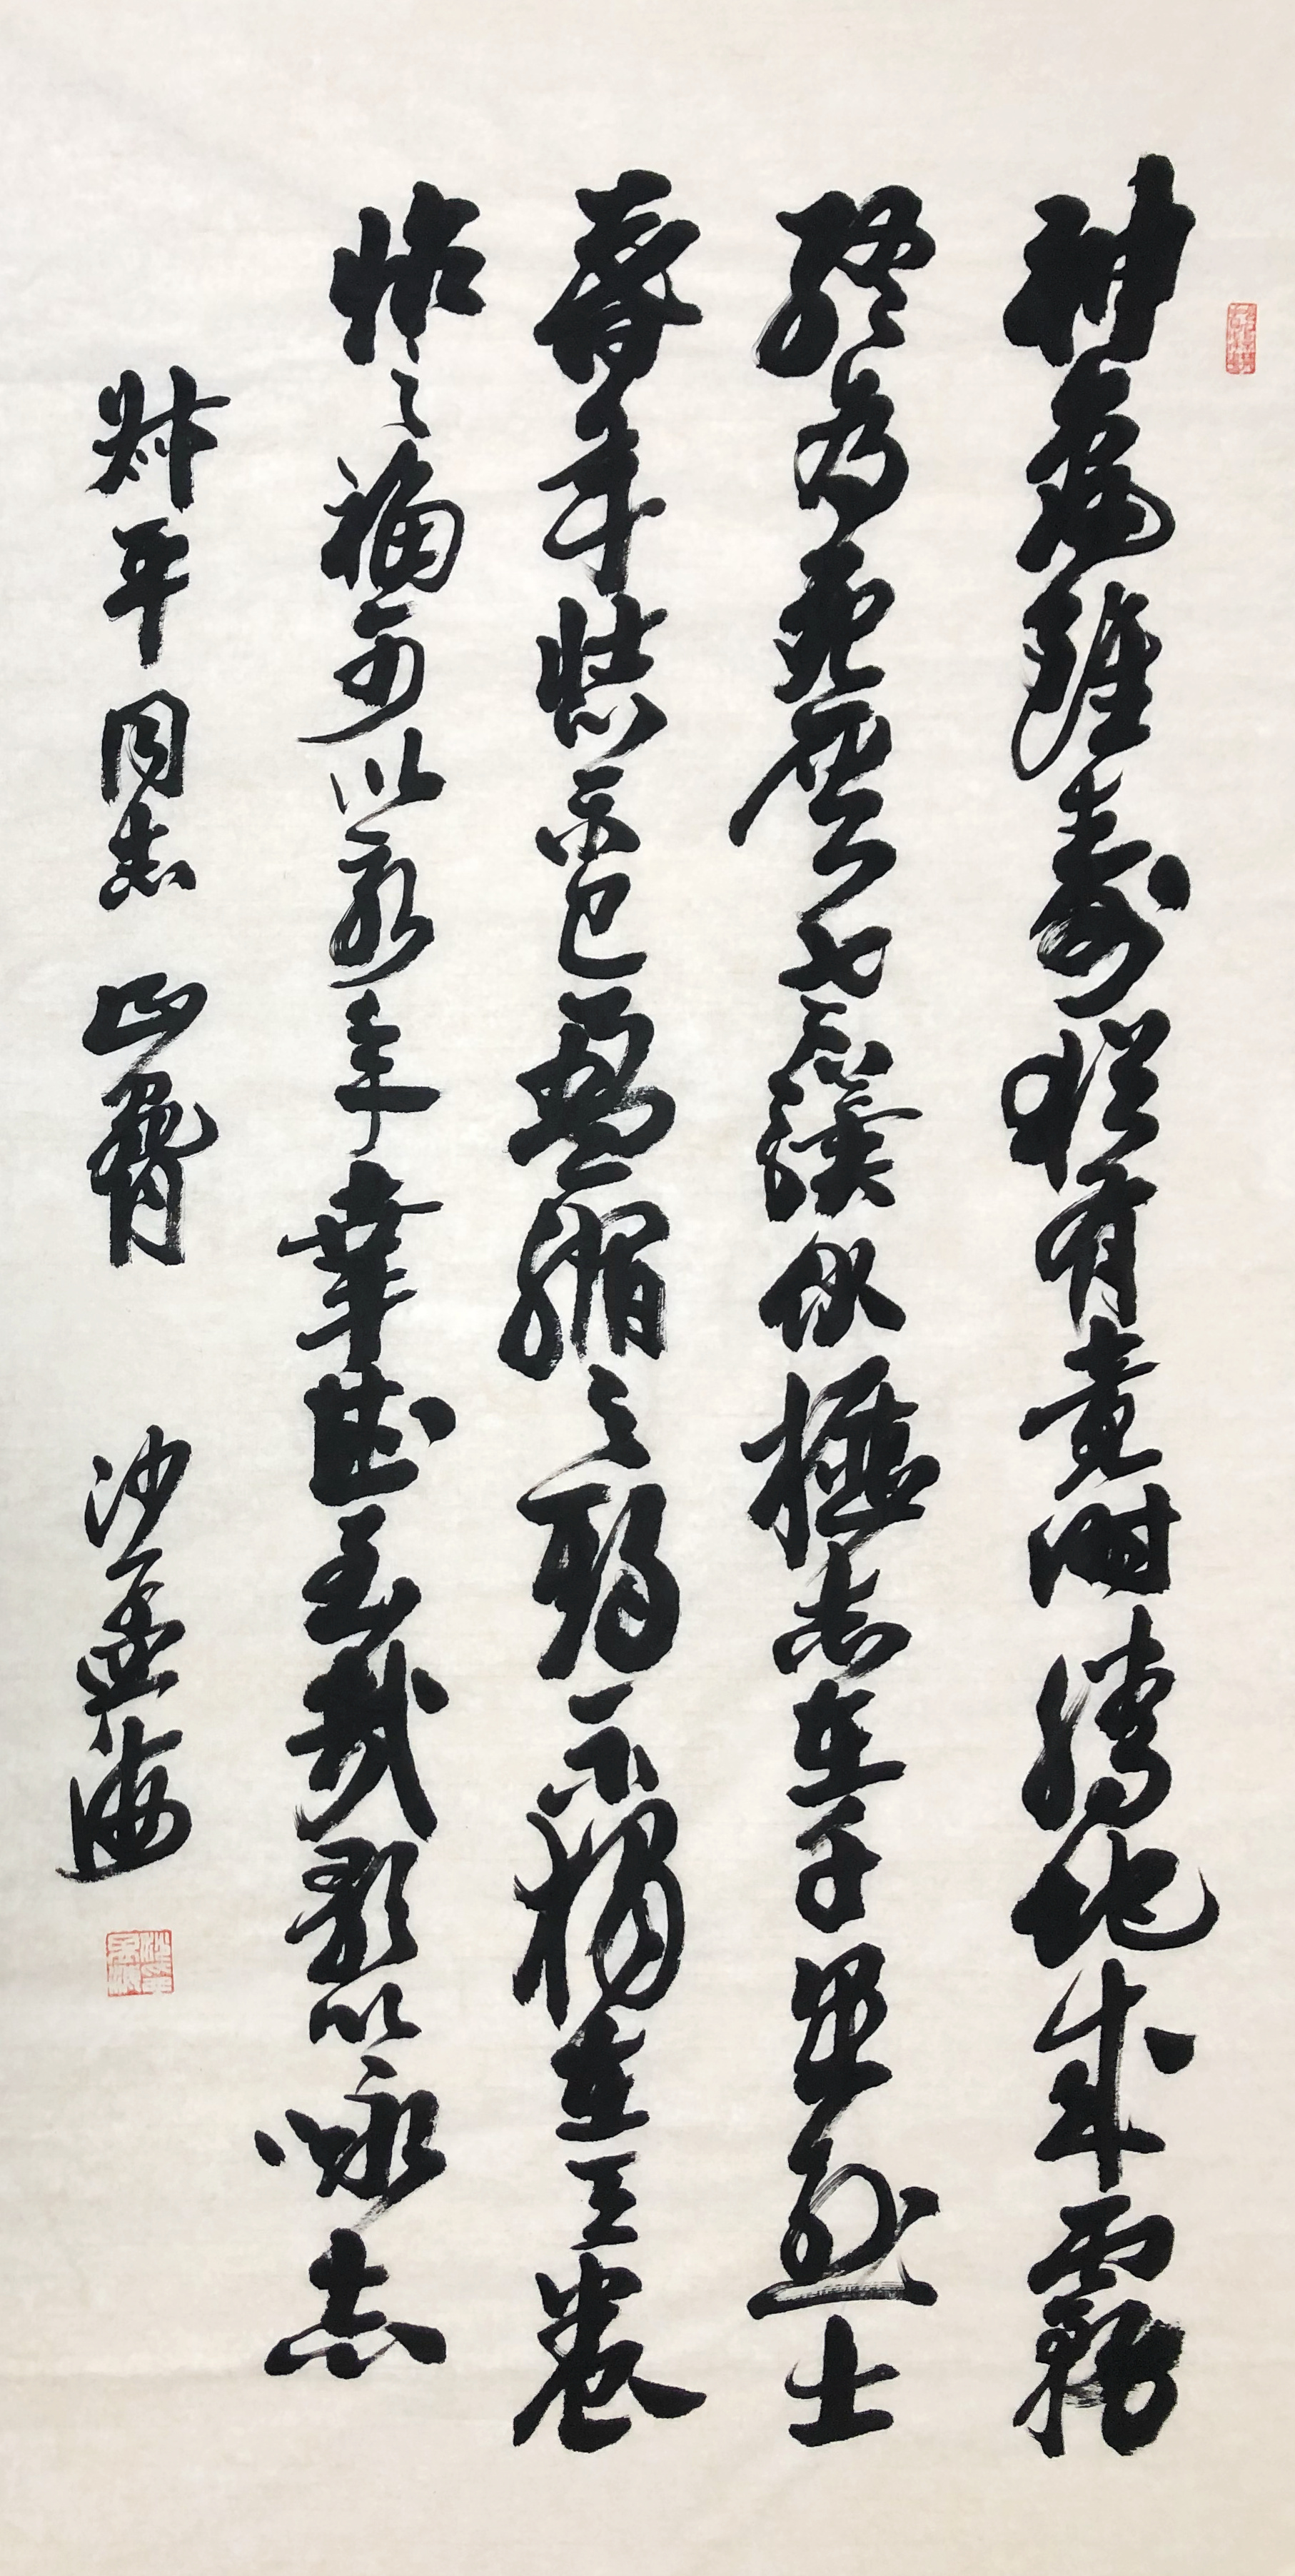 神龜雖壽猶有竟時騰蛇乘霧
終為土灰老驥伏櫪志在千里烈士
暮年壯心不已盈縮之期不獨在天養
怡之福可以永年幸甚至哉歌以詠志
叔平同志 正
沙孟海